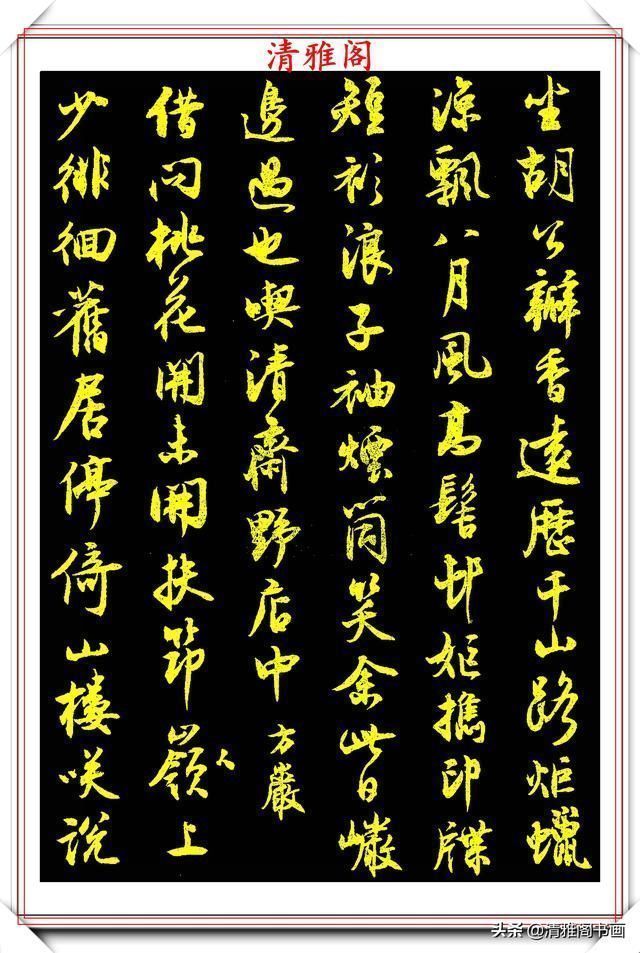 清雅阁
坐胡公瓣香遠歷千山路炬蠟
涼飄八月風高髻邨姬携印牒
短衫浪子袖煙筒笑余此日巖
邊過也喫清齋野店中 方巖
借问桃花開未開扶筇嶺上
人
少徘徊舊居停倚山樓咲說
头条@清雅阁书画